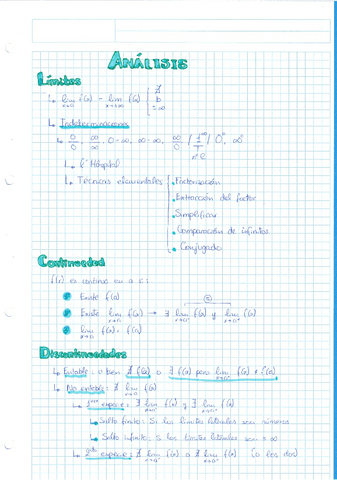 ANÁLISIS
Límites
↳ lim f(x) = lim f(x) { ∄
x→a x→±∞ b
±∞
↳ Indeterminaciones
↳ 0/0, ∞/∞, 0·∞, ∞-∞, 1^∞, 0⁰, ∞⁰
nº e
↳ L'Hôpital
↳ Técnicas elementales { • Factorización
• Extracción del factor
• Simplificar
• Comparación de infinitos
• Conjugado
Continuidad
f(x) es continua en a si:
Existe f(a)
Existe lim f(x) → ∃ lim f(x) y lim f(x)
lim f(x) = f(a)
Discontinuidades
↳ Evitable: o bien ∄ f(a) o ∃ f(a) pero lim f(x) ≠ f(a)
↳ No evitable: ∄ lim f(x)
↳ 1ª especie: ∃ lim f(x) y ∃ lim f(x)
↳ Salto finito: Si los límites laterales son números
↳ Salto infinito: Si los límites laterales son ± ∞
↳ 2ª especie: ∄ lim f(x) o ∄ lim f(x) (o los dos)